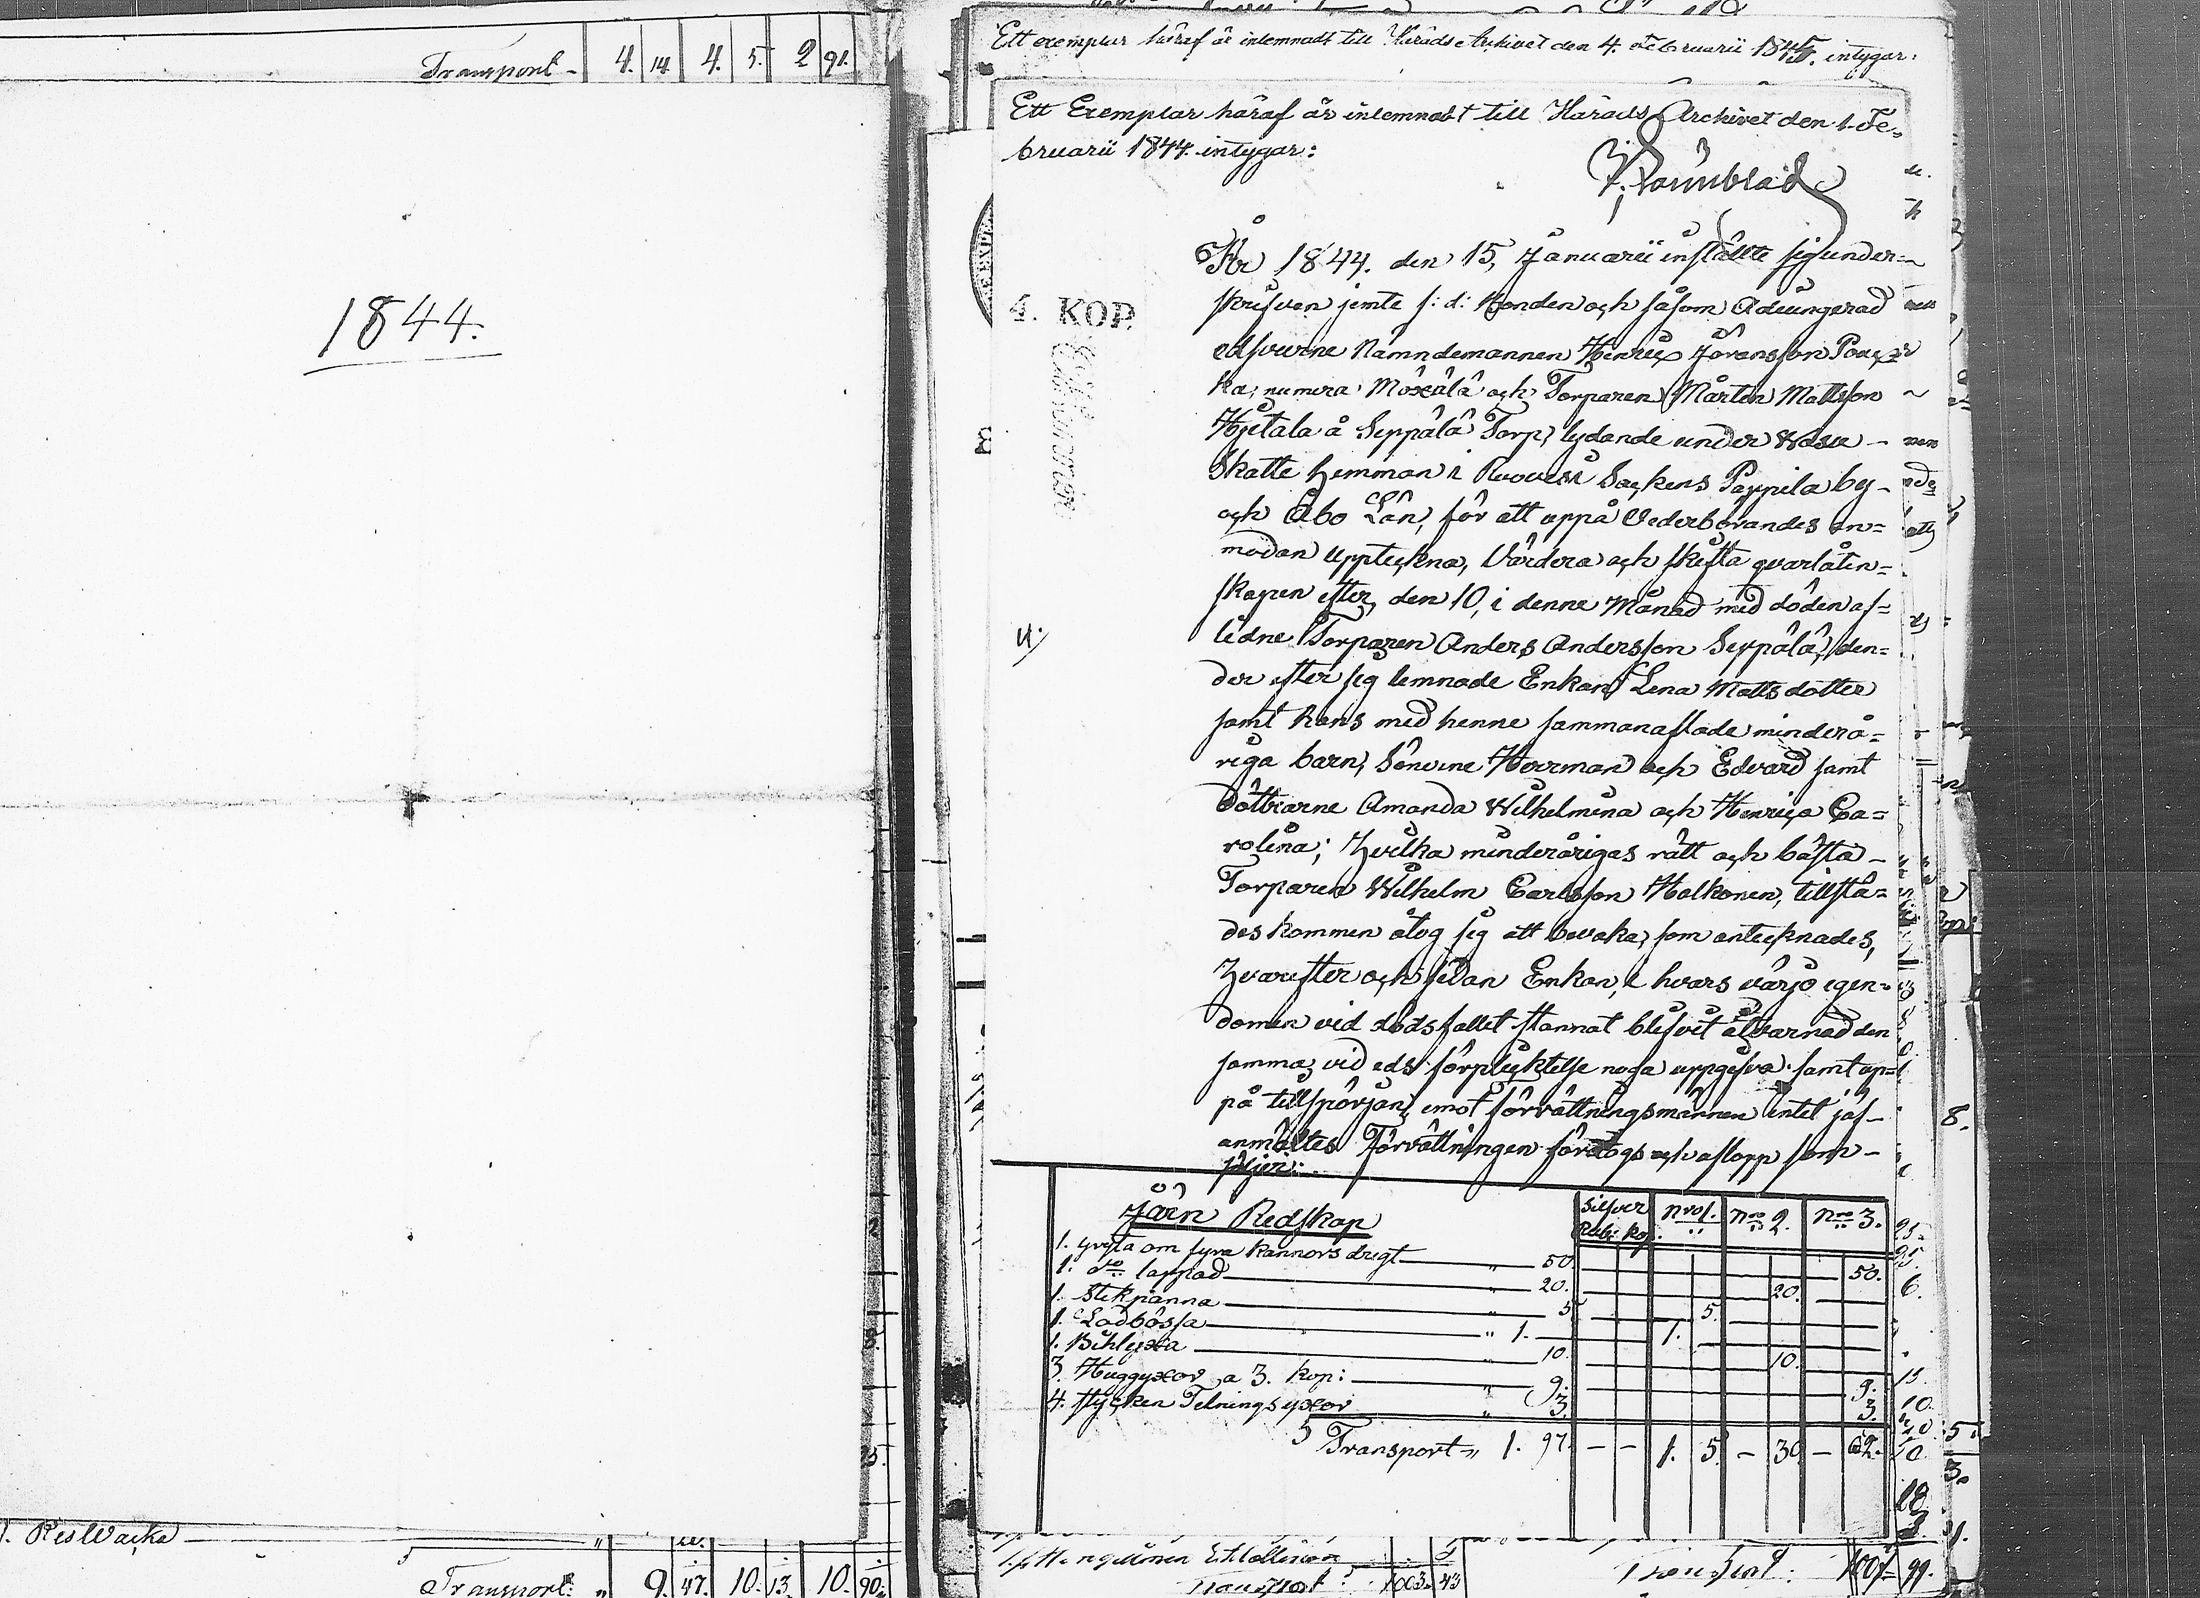 Transport - 4. 14 4. 5. 2 91.
1844.
1. ResWacka
Transport: " 9. 47. 10. 13. 10. 90.
Ett exemplar häraf är inlemnadt till Härads Archivet den 4. Februarii 1845. intygar:
Ett Exemplar häraf är inlemnadt till Härads Archivet den 1. Fe-
bruarii 1844. intygar:
År 1844. den 15, Januarii inställte sig under-
skrifven jemte s: d: Bonden och såsom Adiungerad
edsvurne Nämndemannen Henric Göransson
ka, numera Möxälä och Torparen Mårten Mattsson
Hjetala å Seppälä Torp, lydande under Wasu
Skatte hemman i Ruovesi Sockens Pappila by
och Åbo Län, för att uppå Vederbörandes an=
modan uppteckna, Värdera och skifta qvarlåten=
skapen efter den 10, i denne Månad med döden af=
4. KOP.
lidne Torparen Anders Andersson Seppälä, den=
der efter sig lemnade Enkan Lena Matts dotter
samt hans med henne sammanaflade minderå=
riga barn, Sönerne Herrman och Edvard samt
döttrarne Amanda Wilhelmina och Henrica Ca=
rolina; hvilka minderårigas rätt och bästa
Torparen Wilhelm Carlsson Halkonen, tillstä=
des kommen åtog sig att bevaka, som antecknades,
hvarefter och sedan Enkan, i hvars värjo egen=
domen vid dödsfallet stannat blifvit åtvarnad den
samma, vid eds förplicktelse noga uppgifva samt up=
på tillspörjan, emot förrättningsmännen intet jäf
anmältes Förrättningen företogs och aflopp som
följer:
Järn Redskap Silfver Rub: Kop. Nro 1. Nro 2. Nro 3.
1. gryta om fyra kannors drygt " 50. 50.
1. do lappad " 20. 20.
1. Stekpanna " 5. 5.
1. Lodbössa " 1. 1.
1. Bihlyxa " 10. 10.
3. Huggyxor a 3. kop: " 9. 9.
4. stycken Telningsyxor " 3. 3.
Transport " 1. 97. - - 1. 5. - 30 - 62.
Transport: 1003. 43
99.